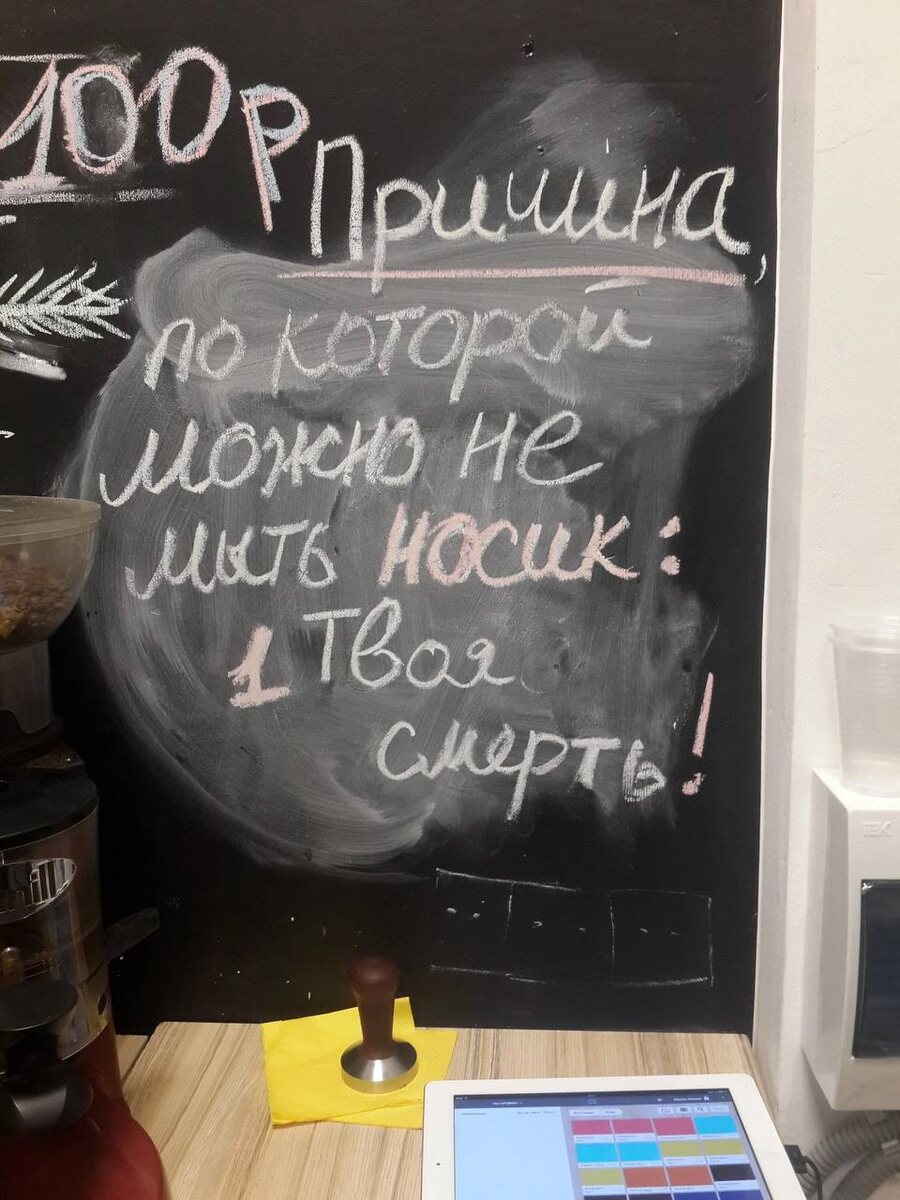 100 р
Причина,
по которой
можно не
мыть носик:
1 Твоя
смерть!